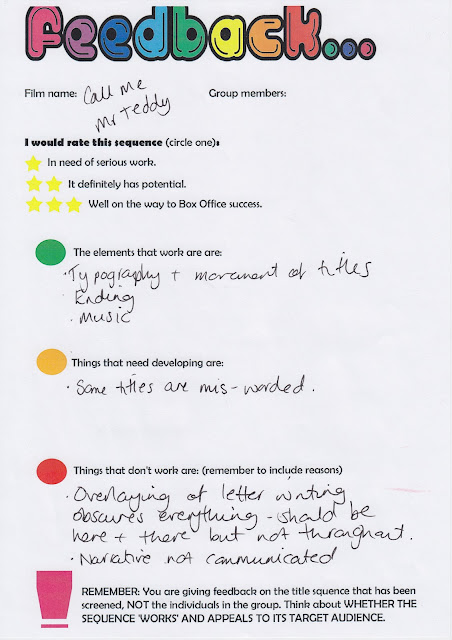 Feedback...
Film name: Call Me Group members:
Mr Teddy
I would rate this sequence (circle one):
In need of serious work.
It definitely has potential.
Well on the way to Box Office success.
The elements that work are are:
· Typography + movement of titles
· Ending
· Music
Things that need developing are:
· Some titles are mis-worded.
Things that don't work are: (remember to include reasons)
· Overlaying of letter writing
obscures everything - should be
here + there but not throughout.
· Narrative not communicated
REMEMBER: You are giving feedback on the title squence that has been
screened, NOT the individuals in the group. Think about WHETHER THE
SEQUENCE 'WORKS' AND APPEALS TO ITS TARGET AUDIENCE.